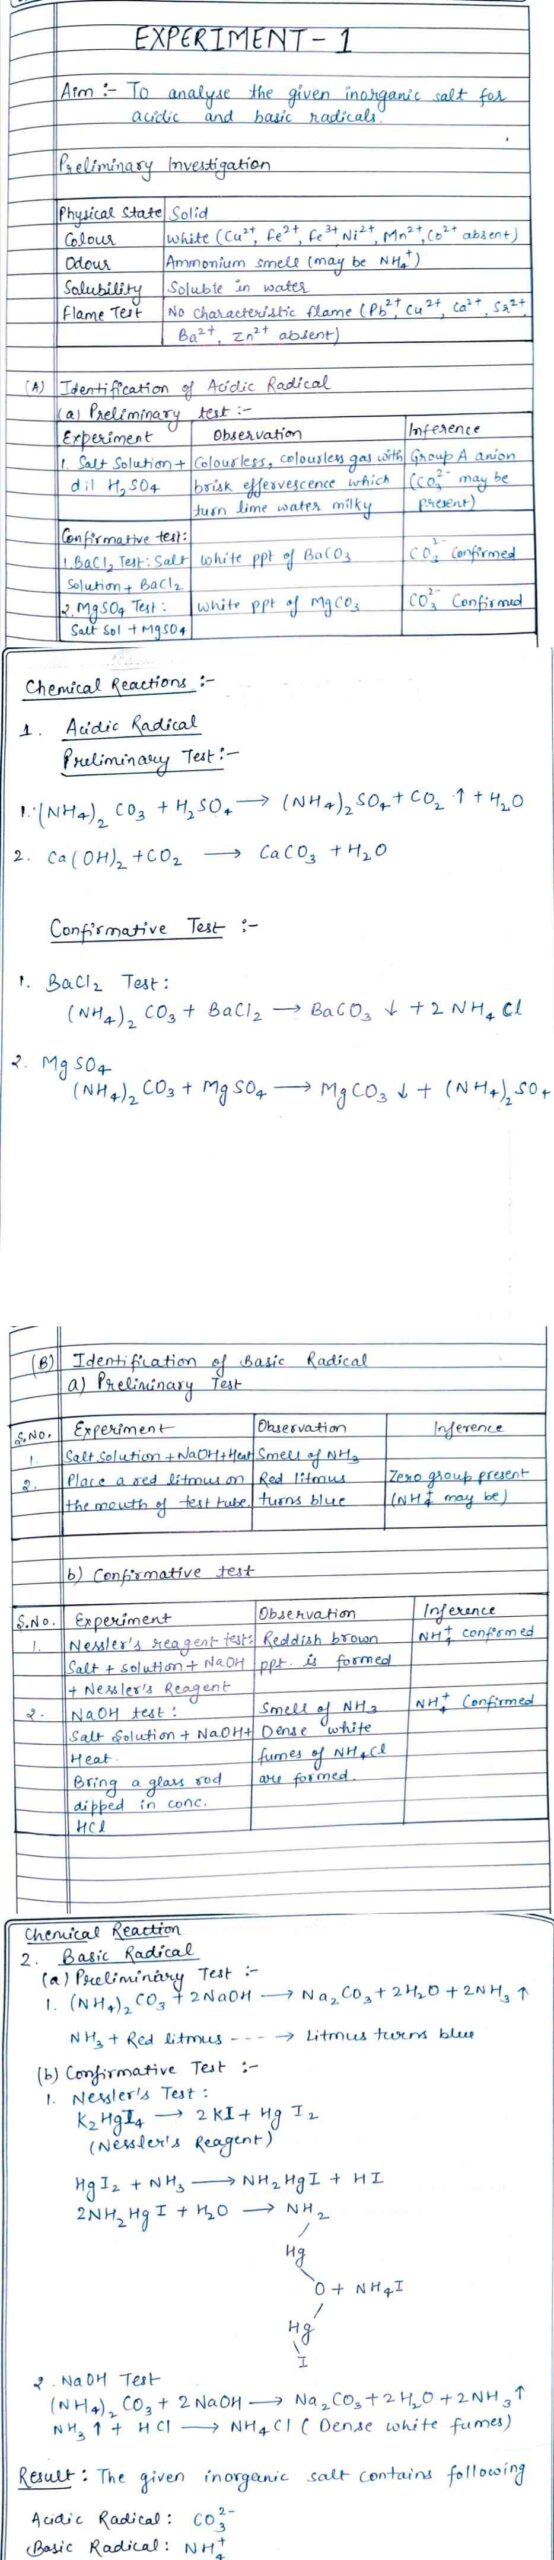 EXPERIMENT - 1
Aim :- To analyse the given inorganic salt for
acidic and basic radicals.
Preliminary Investigation
Physical State Solid
Colour White (Cu²⁺, Fe²⁺, Fe³⁺, Ni²⁺, Mn²⁺, Co²⁺ absent)
Odour Ammonium smell (may be NH₄⁺)
Solubility Soluble in water
Flame Test No characteristic flame (Pb²⁺, Cu²⁺, Ca²⁺, Sr²⁺,
Ba²⁺, Zn²⁺ absent)
(A) Identification of Acidic Radical
(a) Preliminary test :-
Experiment Observation Inference
1. Salt Solution + Colourless, colourless gas with Group A anion
dil H₂SO₄ brisk effervescence which (CO₃²⁻ may be
turn lime water milky present)
Confirmative test:
1. BaCl₂ Test: Salt White ppt of BaCO₃ CO₃²⁻ Confirmed
Solution + BaCl₂
2 MgSO₄ Test : White ppt of MgCO₃ CO₃²⁻ Confirmed
Salt Sol + MgSO₄
Chemical Reactions :-
1. Acidic Radical
Preliminary Test :-
1. (NH₄)₂ CO₃ + H₂SO₄ → (NH₄)₂ SO₄ + CO₂ ↑ + H₂O
2. Ca(OH)₂ + CO₂ → CaCO₃ + H₂O
Confirmative Test :-
1. BaCl₂ Test :
(NH₄)₂ CO₃ + BaCl₂ → BaCO₃ ↓ + 2 NH₄ Cl
2. MgSO₄
(NH₄)₂ CO₃ + MgSO₄ → MgCO₃ ↓ + (NH₄)₂ SO₄
(B) Identification of Basic Radical
a) Preliminary Test
S.No. Experiment Observation Inference
1. Salt Solution + NaOH + Heat Smell of NH₃
2. Place a red litmus on Red litmus Zero group present
the mouth of test tube. turns blue (NH₄⁺ may be)
b) Confirmative test
S.No. Experiment Observation Inference
1. Nessler's reagent test: Reddish brown NH₄⁺ confirmed
Salt + solution + NaOH ppt. is formed
+ Nessler's Reagent
2. NaOH test : Smell of NH₃ NH₄⁺ Confirmed
Salt Solution + NaOH + Dense white
Heat. fumes of NH₄Cl
Bring a glass rod are formed.
dipped in conc.
HCl
Chemical Reaction
2. Basic Radical
(a) Preliminary Test :-
1. (NH₄)₂ CO₃ + 2NaOH → Na₂CO₃ + 2H₂O + 2NH₃ ↑
NH₃ + Red litmus ---→ Litmus turns blue
(b) Confirmative Test :-
1. Nessler's Test :
K₂HgI₄ → 2KI + HgI₂
(Nessler's Reagent)
HgI₂ + NH₃ → NH₂HgI + HI
2NH₂HgI + H₂O → NH₂
Hg
O + NH₄I
Hg
I
2. NaOH Test
(NH₄)₂ CO₃ + 2 NaOH → Na₂CO₃ + 2H₂O + 2NH₃ ↑
NH₃ ↑ + HCl → NH₄Cl (Dense white fumes)
Result : The given inorganic salt contains following
Acidic Radical : CO₃²⁻
Basic Radical : NH₄⁺